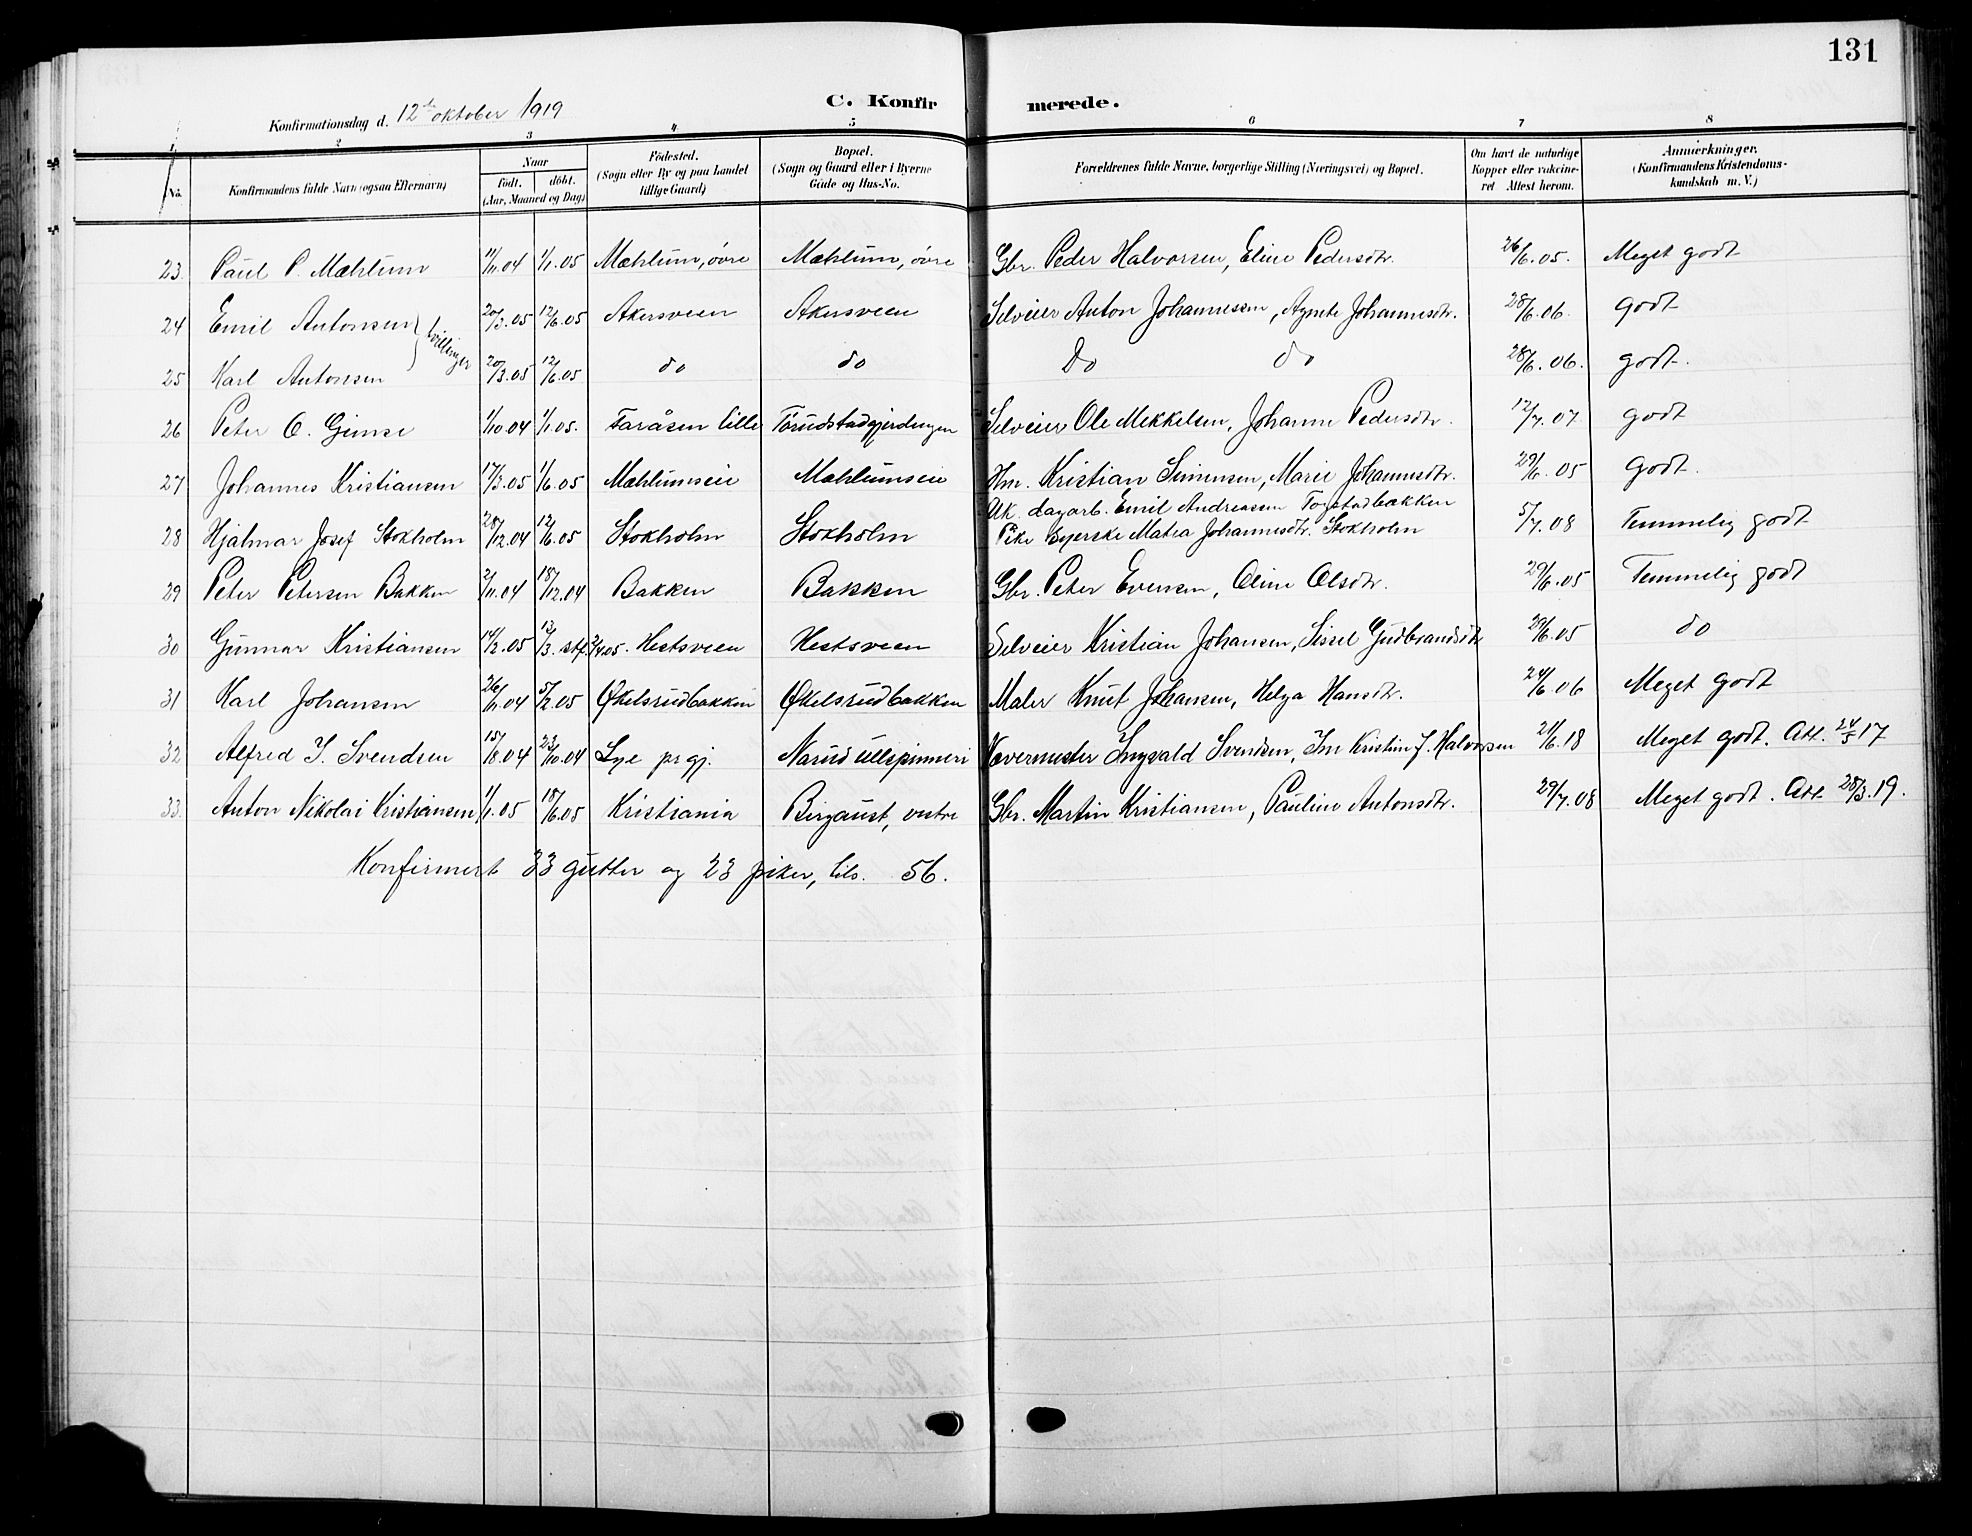 131
C. Konfirmerede.
Konfirmationsdag d. 12te oktober 1919
2 3 4 5 6 7 8
No. Konfirmandens fulde Navn (ogsaa Efternavn) Naar födt. döbt. (Aar, Maaned og Dag) Födested. (Sogn eller By og paa Landet tillige Gaard) Bopæl. (Sogn og Gaard eller i Byerne Gade og Hus-No. Forældrenes fulde Navne, borgerlige Stilling (Næringsvei) og Bopæl. Om havt de naturlige Kopper eller vakcineret Attest herom. Anmærkninger. (Konfirmandens Kristendomskundskab m. V.)
23 Paul P. Mæhlum 11/11.04 1/1.05 Mæhlum, övre Mæhlum, övre Gbr. Peder Halvorsen, Eline Pedersdtr. 26/6.05. Meget godt
24 Emil Antonsen } tvillinger 20/3.05 12/6.05 Akersveen Akersveen Selveier Anton Johannessen, Agnete Johannesdtr. 28/6.06. godt
25 Karl Antonsen 20/3.05 12/6.05 do do Do do 28/6.06. godt.
26 Peter O. Gimse 1/10.04 1/1.05. Faråsen lille Törudstadgjerdingen Selveier Ole Mikkelsen, Johanne Pedersdtr. 12/7.07 godt
27 Johannes Kristiansen 17/3.05 1/6.05 Mæhlumseie Mæhlumseie Hm. Kristian Simensen, Marie Johannesdtr. 29/6.05 Godt.
28 Hjalmar Josef Stokholm 28/12.04 12/6.05 Stokholm Stokholm Uk. dagarb. Emil Andreassen Togstadbakken 5/7.08 Temmelig godt
Pike syerske Matea Johannesdtr. Stokholm
29 Peter Petersen Bakken 2/11.04 18/12.04 Bakken Bakken Gbr. Peter Evensen, Oline Olsdtr. 29/6.05 Temmelig godt
30 Gunnar Kristiansen 14/2.05 12/3. stf. 2/4 05. Hestsveen Hestsveen Selveier Kristian Johansen, Sissel Gudbrandsdtr 29/6.05 do
31 Karl Johansen 26/11.04 5/2.05 Økelsrudbakken Økelsrudbakken Maler Knut Johansen, Helga Hansdtr. 24/6.06 Meget godt
32 Alfred I. Svendsen 15/8.04 23/10.04 Lye prgj. Narud ullspinneri Vævermester Ingvald Svendsen, Ine Kristine J. Halvorsen 21/6.18 Meget godt. Att. 24/5 17
33. Anton Nikolai Kristiansen 1/1.05 18/6.05 Kristiania Birgaust, vestre Gbr. Martin Kristiansen, Pauline Antonsdtr. 29/7.08 Meget godt. Att. 28/3.19.
Konfirmert 33 gutter og 23 piker, tils. 56.